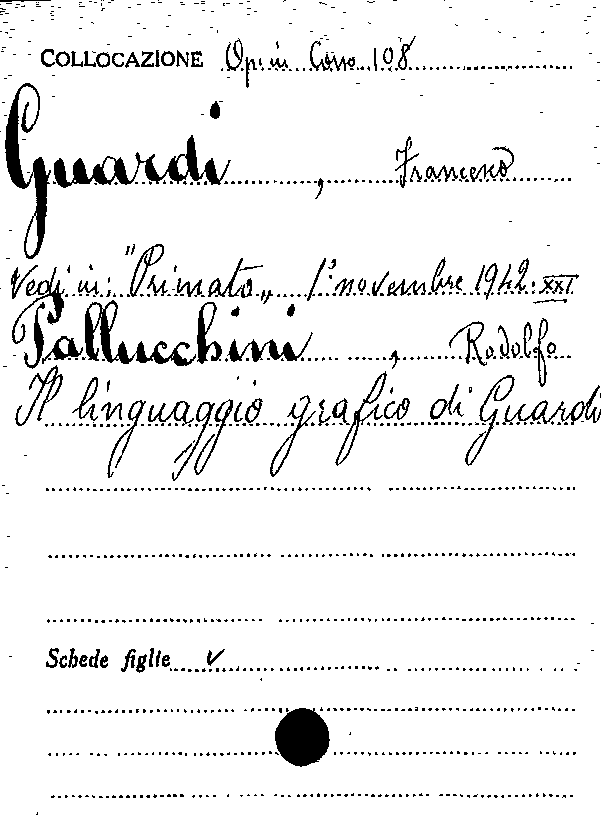 COLLOCAZIONE Op. in Casso 108
Guardi, Francesco
Vedi in: "Primato„ 1° novembre 1942. XXI
Pallucchini, Rodolfo
Il linguaggio grafico di Guardi
Schede figlie ✓